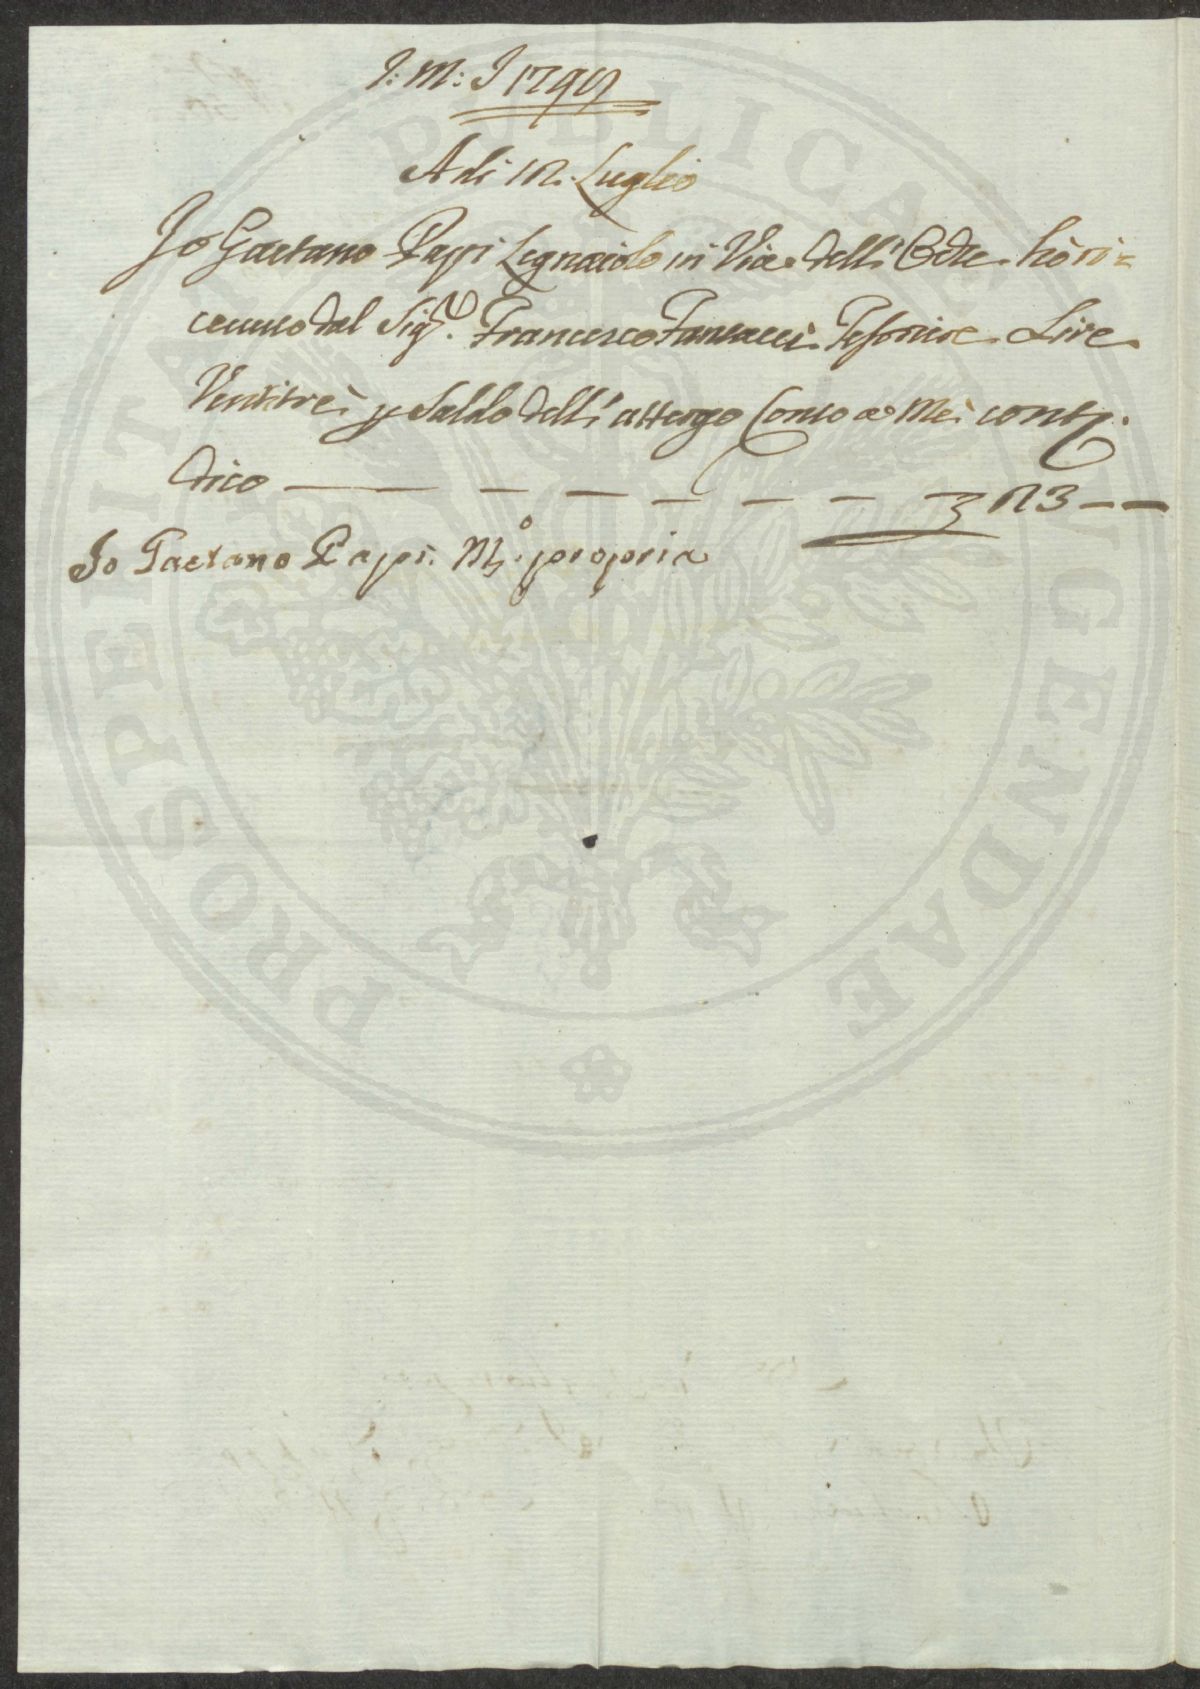 J: M: J 1799
A di 12. Luglio
Io Gaetano Papi Legnaiolo in Via dell' Ore hò ri=
cevuto dal Sig.r Francesco Tesoriere Lire
Ventitrè p saldo dell' attergo Conto a Mè cont.
dico — — — — — — — — 23 — —
Io Gaetano Papi. Mo. propria
PROSPERITATI PUBLICAE AUGENDAE